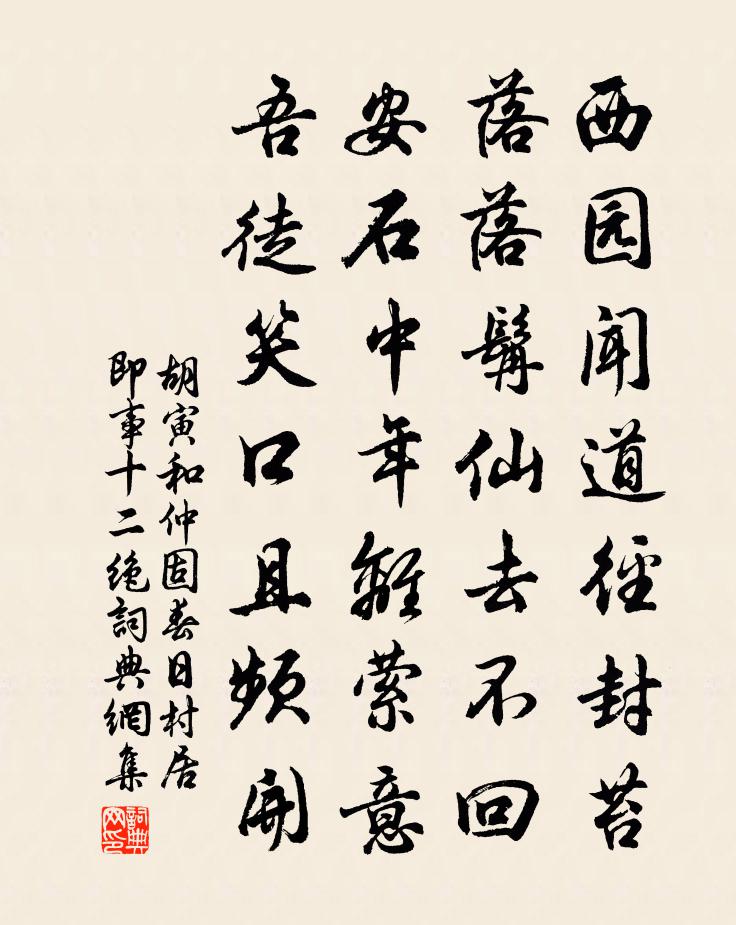 西园闻道径封苔
落落髯仙去不回
安石中年離萦意
吾徒笑口且频開
胡寅和仲固春日村居
即事十二绝詞典網集
詞典网印